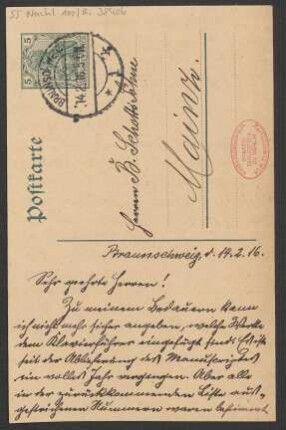 55 Nachl 100/A,
5 5
BRAUNSCHWEIG
14.2.16.
Postkarte
Herren B. Schott's Söhne
Mainz.
Braunschweig, d. 14.2.16.
Sehr geehrte Herren!
Zu meinem Bedauern kann
ich nicht mehr sicher angeben, welche Werke
dem Klavierführer eingefügt sind. Es ist
seit der Ablieferung des Manuscriptes
ein volles Jahr vergangen. Aber alle
in der zurückkommenden Liste aus-
gestrichenen Nummern waren bestimmt